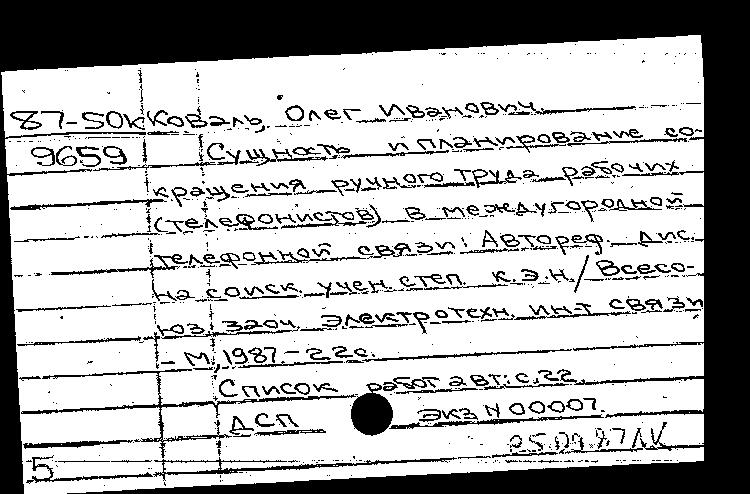 87-50к Коваль, Олег Иванович.
9659 Сущность и планирование со-
кращения ручного труда рабочих
(телефонистов) в междугородной
телефонной связи: Автореф. дис.
на соиск. учен. степ. к.э.н./ Всесо-
юз. заоч. электротехн. ин-т связи
- М., 1987. - 22с.
Список работ авт.: с. 22.
ДСП экз N 00007.
25.09.87
5